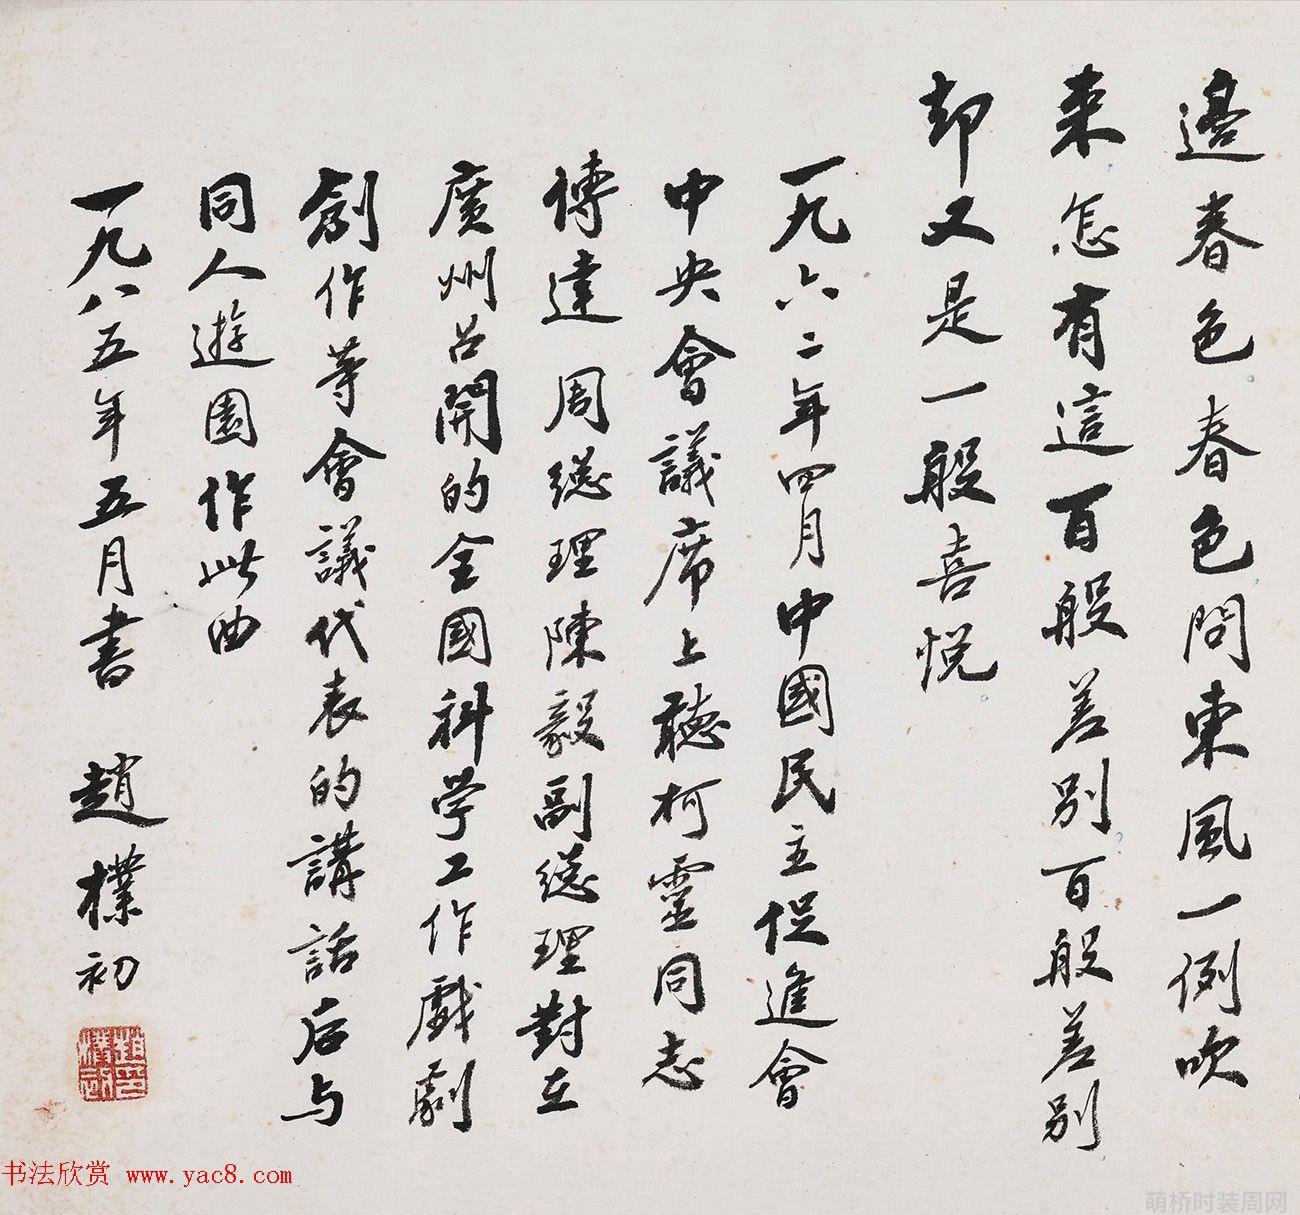 邉春色春色問東風一例吹
来怎有這百般差別百般差別
却又是一般喜悦
一九六二年四月中國民主促進會
中央會議席上聴柯靈同志
傳達周總理陳毅副總理對在
廣州召開的全國科学工作戲劇
創作等會議代表的講話后与
同人遊園作此曲
一九八五年五月書 趙樸初
趙樸初印
书法欣赏 www.yac8.com
萌桥时装周网